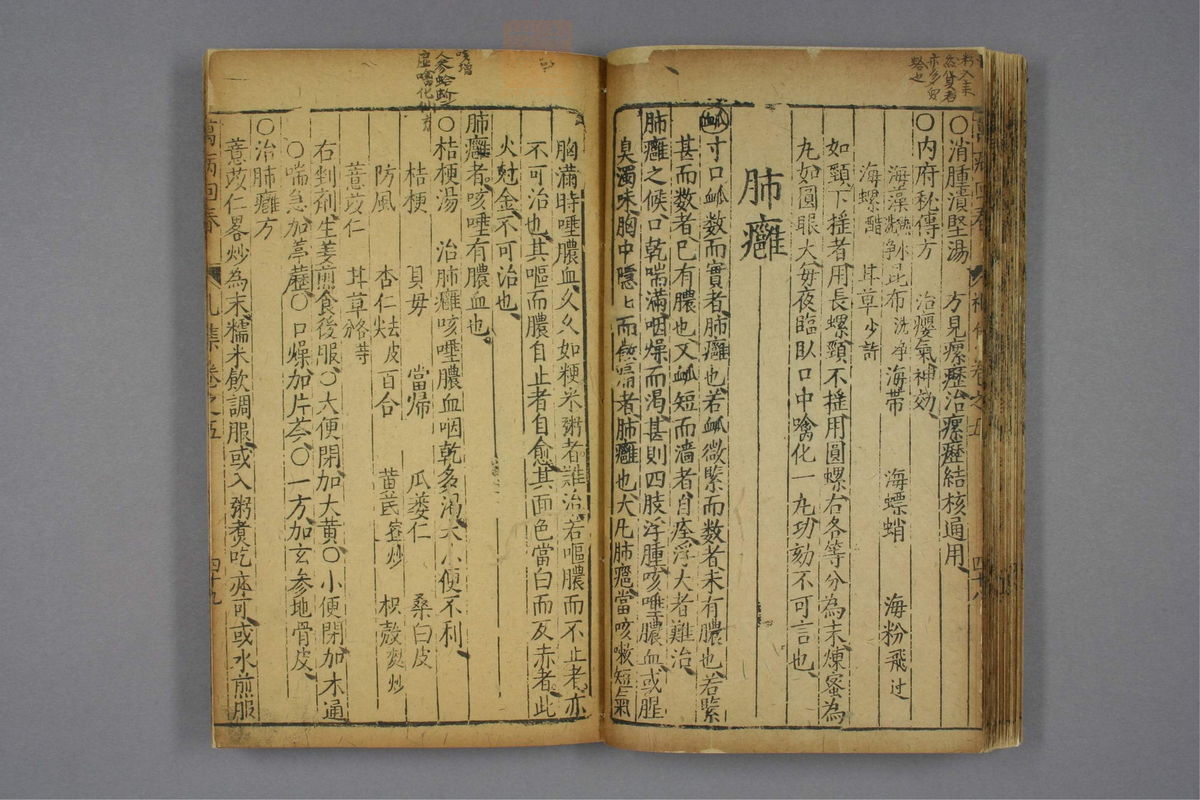 ○消腫潰堅湯　方見瘰癧治瘰癧結核通用
○内府秘傳方　治癭氣神効
海藻熱水洗淨　昆布洗淨　海帶　海螵蛸　海粉飛过
海螺醋　甘草少許
如頸下搖者用長螺頸不搖用圓螺右各等分為末煉蜜為
丸如圓眼大每夜臨臥口中噙化一丸功効不可言也
肺癰
脉寸口脉数而實者肺癰也若脉微緊而数者未有膿也若緊
甚而数者已有膿也又脉短而濇者自痊浮大者難治
肺癰之候口乾喘滿咽燥而渴甚則四肢浮腫咳唾膿血或腥
臭濁味胸中隱匕而痛者肺癰也大凡肺瘡當咳嗽短氣
胸滿時唾膿血久久如粳米粥者難治若嘔膿而不止者亦
不可治也其嘔而膿自止者自愈其面色當白而反赤者此
火尅金不可治也
肺癰者咳唾有膿血也
○桔梗湯　治肺癰咳唾膿血咽乾多渴大小便不利
桔梗　貝母　當帰　瓜蔞仁　桑白皮
防風　杏仁去皮尖　百合　黄芪蜜炒　枳殼麩炒
薏苡仁　甘草各等分
右剉剤生姜煎食後服○大便閉加大黄○小便閉加木通
○喘急加葶藶○口燥加片芩○一方加玄参地骨皮
○治肺癰方
薏苡仁畧炒為末糯米飲調服或入粥煮吃亦可或水煎服
萬病回春　卷之五　四十九